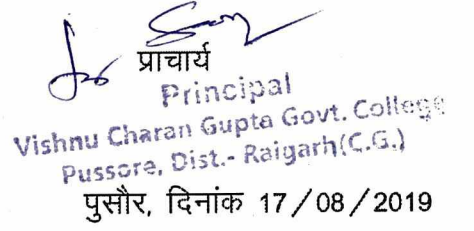 प्राचार्य
Principal
Vishnu Charan Gupta Govt. College
Pussore, Dist.- Raigarh(C.G.)
पुसौर, दिनांक 17/08/2019